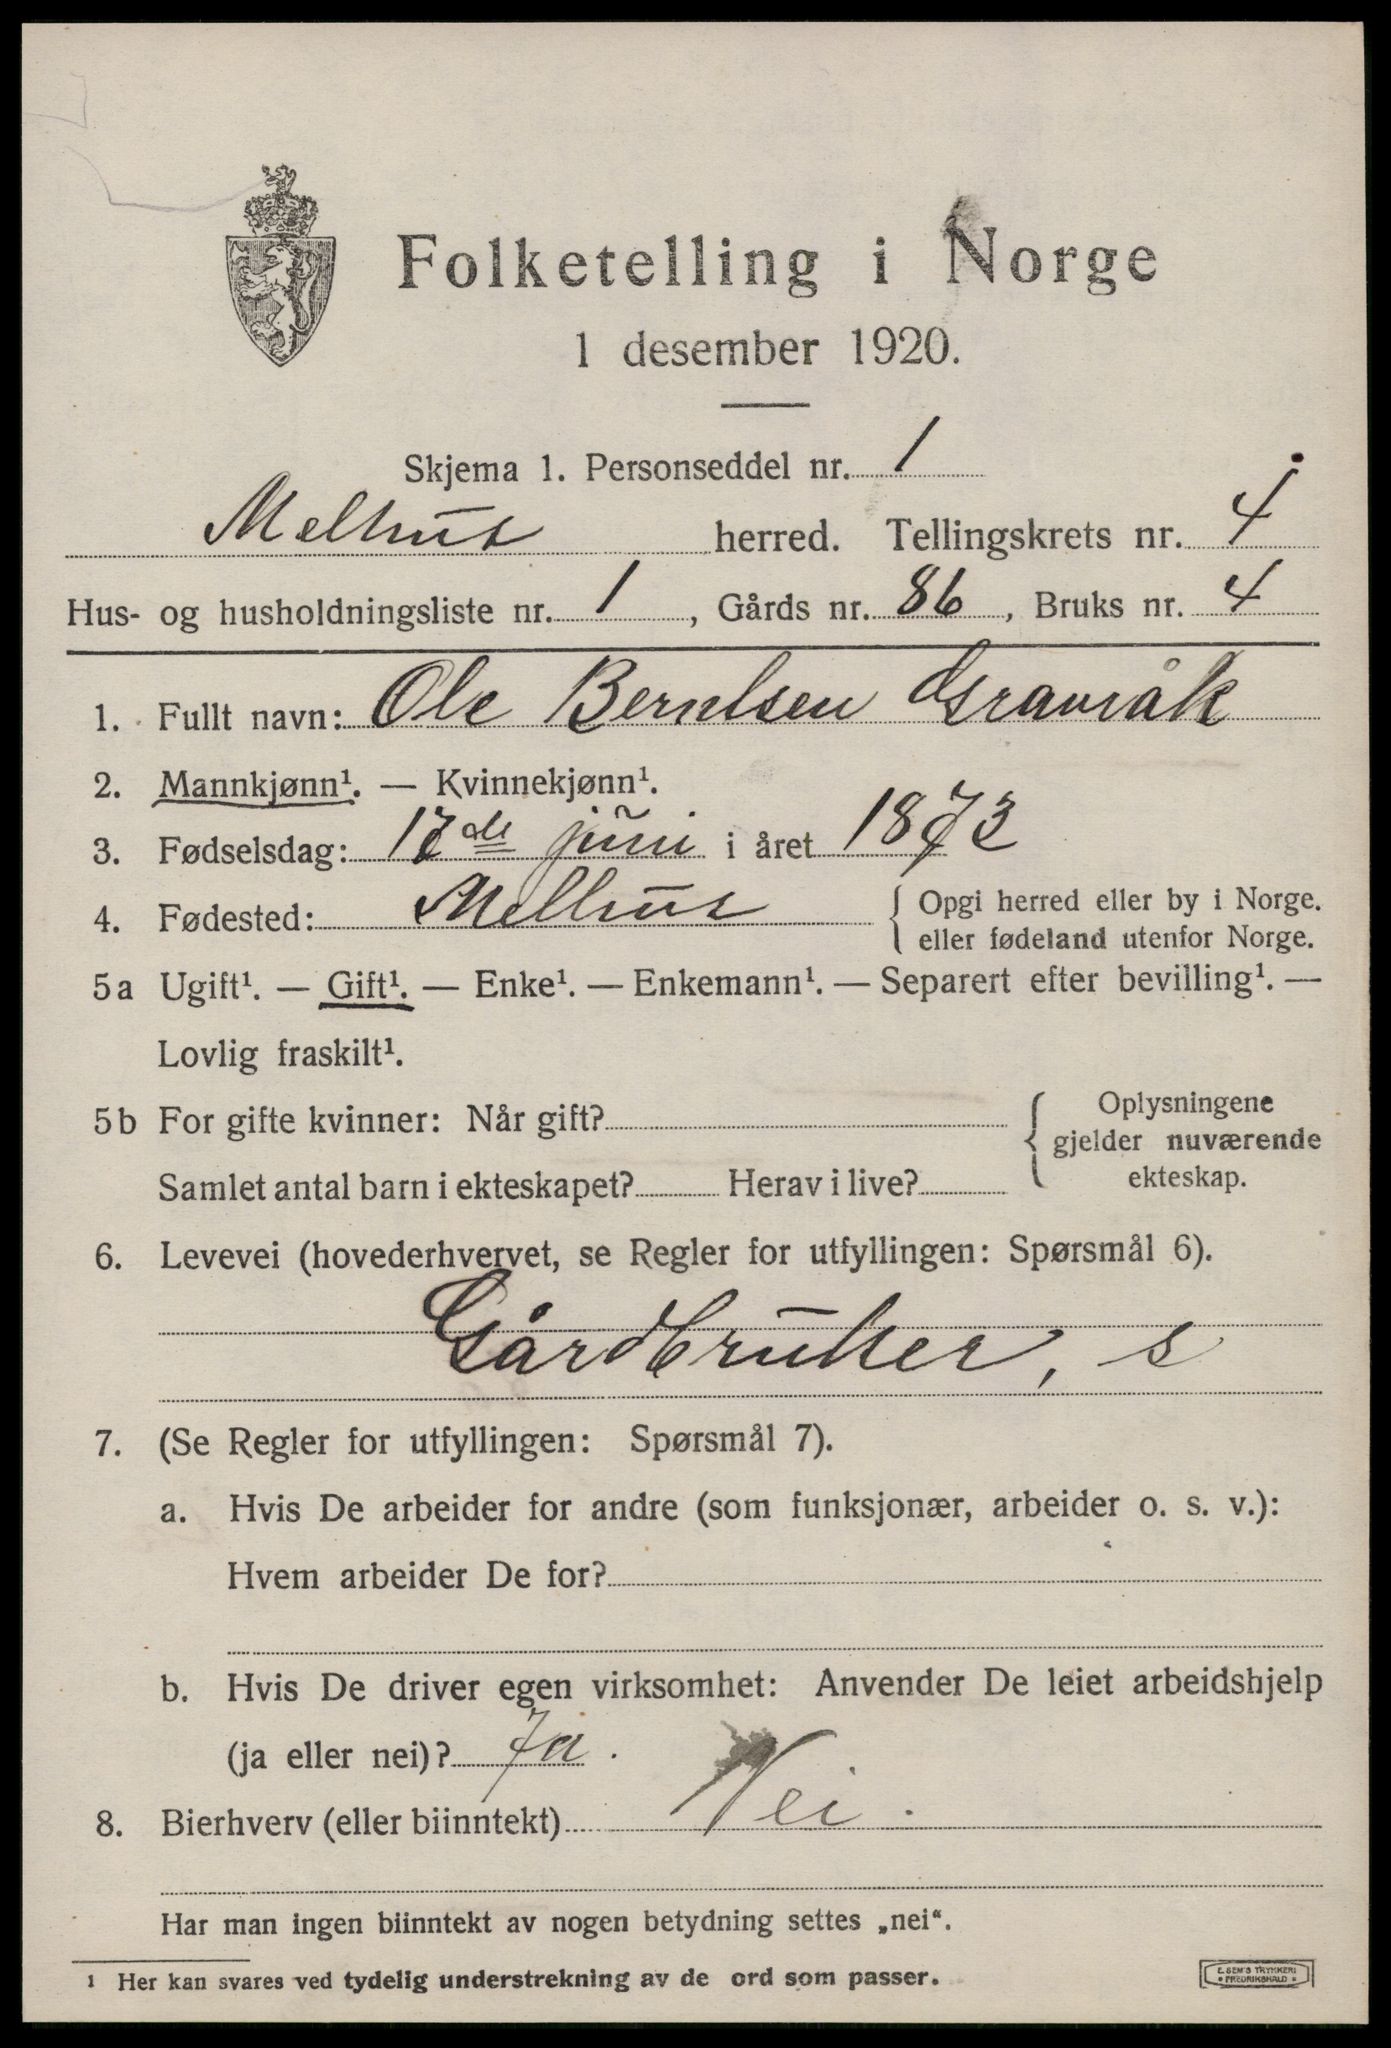 Folketelling i Norge
1 desember 1920.
Skjema 1. Personseddel nr. 1
Melhus herred. Tellingskrets nr. 4
Hus- og husholdningsliste nr. 1, Gårds nr. 86, Bruks nr. 4
1. Fullt navn: Ole Berntsen Gravråk
2. Mannkjønn¹. — Kvinnekjønn¹.
3. Fødselsdag: 17de juni i året 1873
4. Fødested: Melhus { Opgi herred eller by i Norge.
eller fødeland utenfor Norge.
5a Ugift¹. — Gift¹. — Enke¹. — Enkemann¹. — Separert efter bevilling¹. —
Lovlig fraskilt¹.
5b For gifte kvinner: Når gift? { Oplysningene
gjelder nuværende
Samlet antal barn i ekteskapet? Herav i live? ekteskap.
6. Levevei (hovederhvervet, se Regler for utfyllingen: Spørsmål 6).
Gårdbruker, s
7. (Se Regler for utfyllingen: Spørsmål 7).
a. Hvis De arbeider for andre (som funksjonær, arbeider o. s. v.):
Hvem arbeider De for?
b. Hvis De driver egen virksomhet: Anvender De leiet arbeidshjelp
(ja eller nei)? Ja.
8. Bierhverv (eller biinntekt) Nei.
Har man ingen biinntekt av nogen betydning settes „nei“.
¹ Her kan svares ved tydelig understrekning av de ord som passer.
E. SEM'S TRYKKERI
FREDRIKSHALD